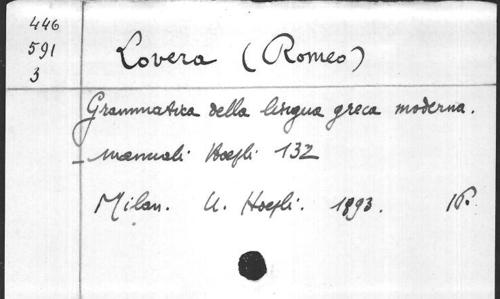 446
591
3
Lovera (Romeo)
Grammatica della lingua greca moderna.
- manuali Hoepli 132
Milan. U. Hoepli. 1893. 16º.